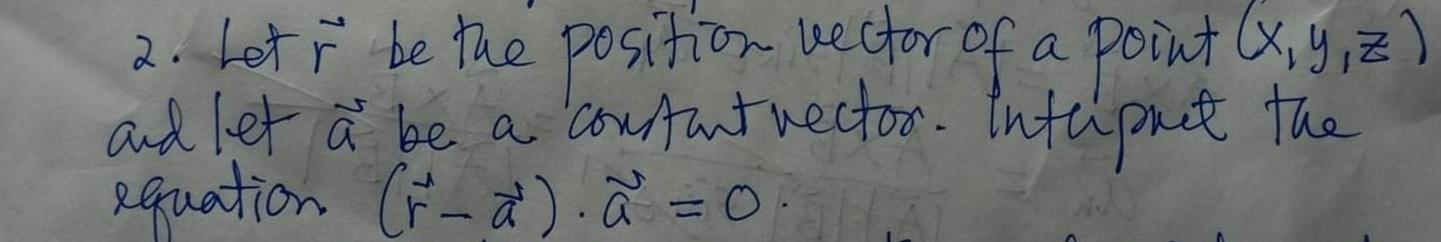 2. Let r⃗ be the position vector of a point (x, y, z)
and let a⃗ be a constant vector. Interpret the
equation (r⃗ - a⃗) · a⃗ = 0.